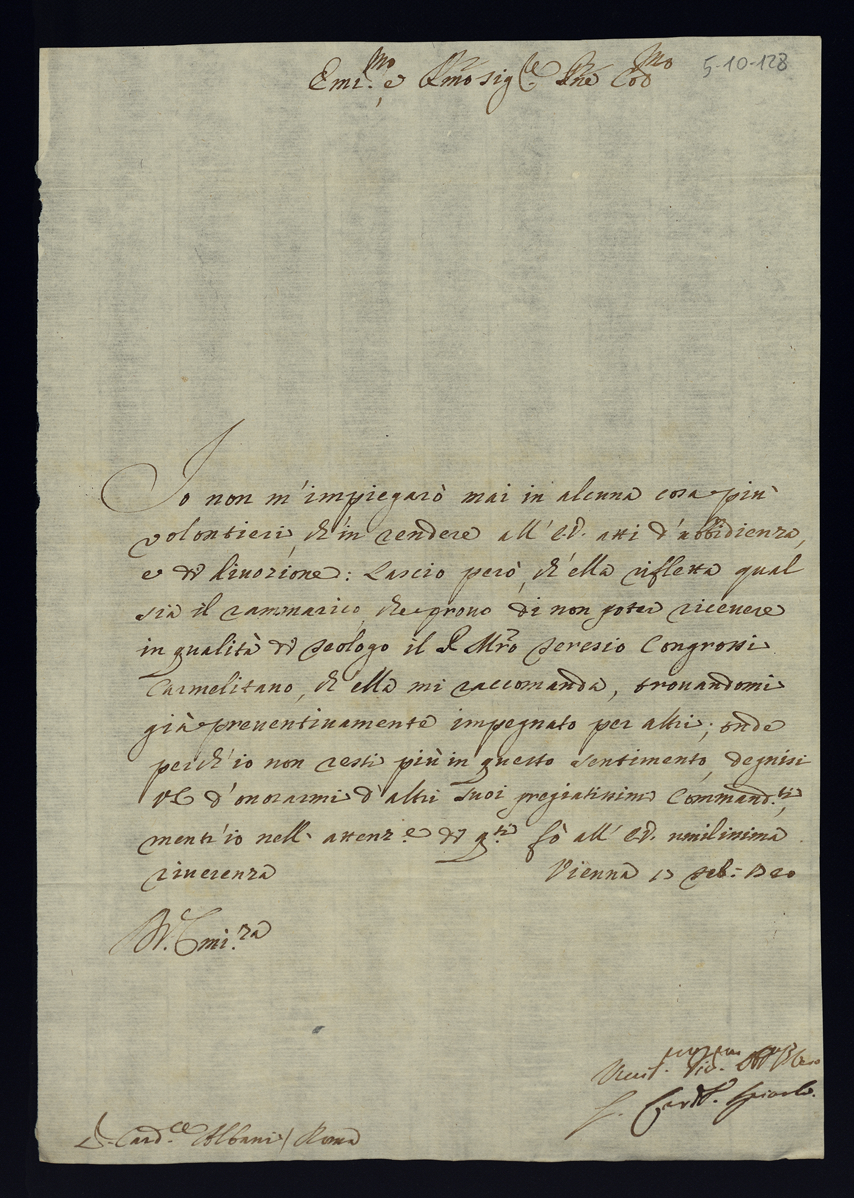 5-10-128
Emi.mo e Rmo Sigre Pne Col.mo
Io non m'impiegarò mai in alcuna cosa più
volontieri, ch'in rendere all' E.V. atti d'ubbidienza,
e di divozione: Lascio però, ch'ella rifletta qual
sia il rammarico, che provo di non poter ricevere
in qualità di Teologo il P. Mro Teresio Congrossi
Carmelitano, ch'ella mi raccomanda, trovandomi
già preventivamente impegnato per altri; onde
perch'io non resti più in questo sentimento, degnisi
V.E. d'onorarmi d'altri suoi pregiatissimi Command.ti,
mentr'io nell' attenz.e di q.ti fò all' E.V. umilissima
riverenza
Vienna 17 Feb: 1720
Di V. Emi.za
Umil.
S. Card.le Albani / Roma